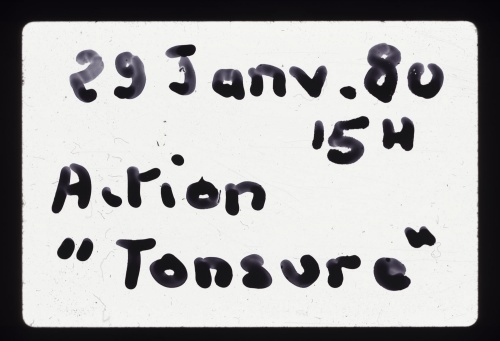 29 Janv. 80
15H
Action
"Tonsure"